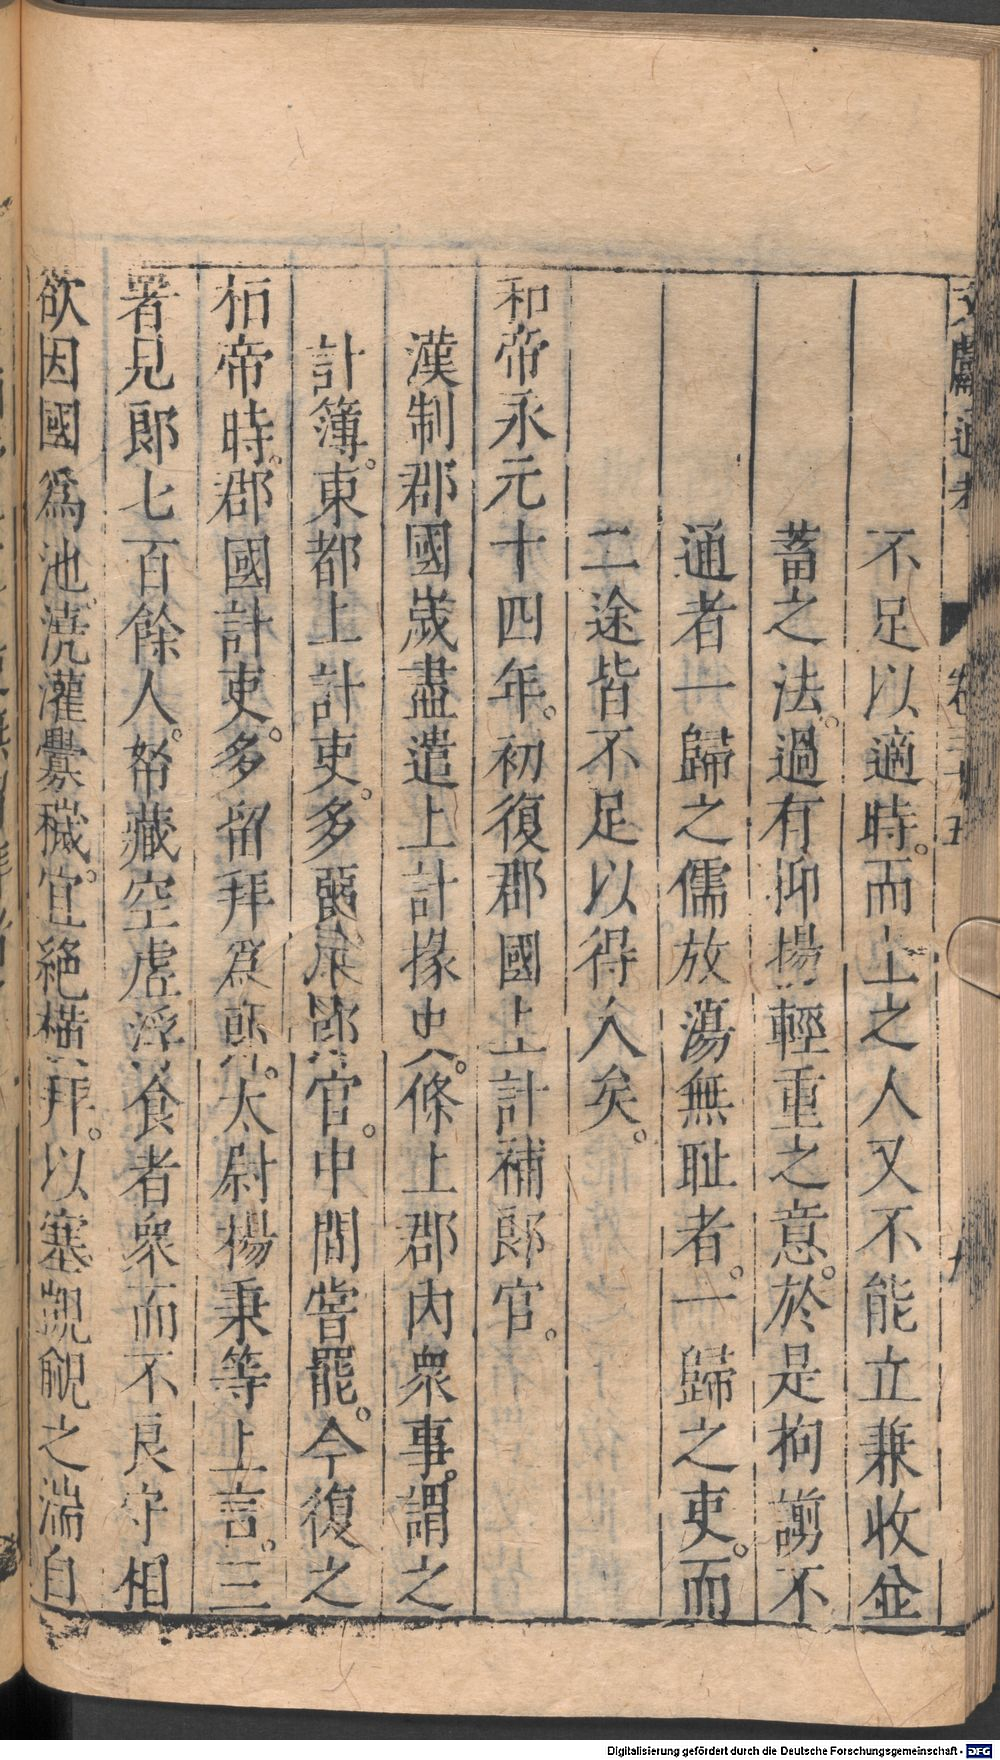 文獻通考 卷三十五
不足以適時。而上之人又不能立兼收並
蓄之法。過有抑揚輕重之意。於是拘謭不
通者一歸之儒放蕩無耻者。一歸之吏。而
二途皆不足以得人矣。
和帝永元十四年。初復郡國上計補郎官。
漢制郡國歲盡遣上計掾史。條上郡內衆事。謂之
計簿。東都上計吏。多留拜郎官。中間嘗罷。今復之
桓帝時。郡國計吏。多留拜爲郎。太尉楊秉等上言。三
署見郎七百餘人。帑藏空虛浮食者衆而不良守相
欲因國爲池。澆灌釁穢。宜絕橫拜。以塞覬覦之端自
Digitalisierung gefördert durch die Deutsche Forschungsgemeinschaft - DFG